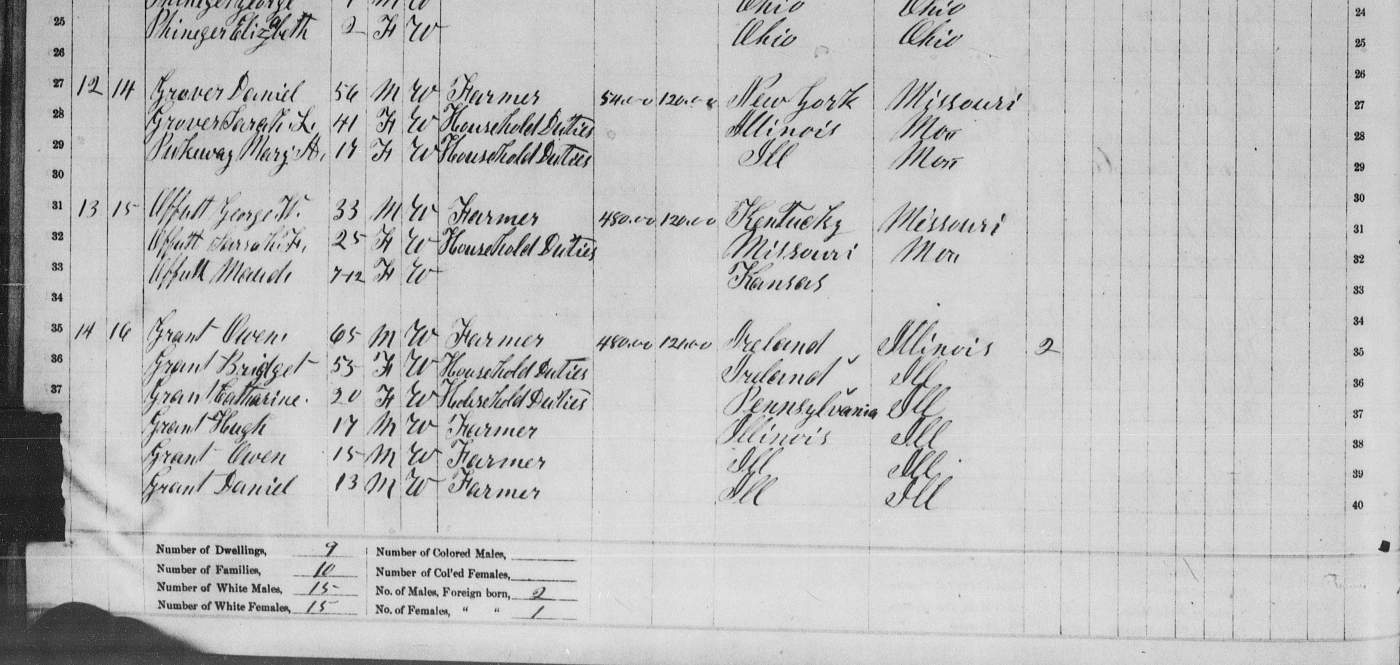 Phineger George 1 M W Ohio Ohio 24
25 Phineger Elizabeth 2 F W Ohio Ohio 25
26 26
27 12 14 Grover Daniel 56 M W Farmer 54000 12000 New York Missouri 27
28 Grover Sarah L. 41 F W Household Duties Illinois Mon 28
29 Mary A. 17 F W Household Duties Ill Mon 29
30 30
31 13 15 Offutt George W. 33 M W Farmer 480.00 120.00 Kentucky Missouri 31
32 Offutt Sarah F. 25 F W Household Duties Missouri Mon 32
33 Offutt Maud 7-12 F W Kansas 33
34 34
35 14 16 Grant Owen 65 M W Farmer 480.00 120.00 Ireland Illinois 2 35
36 Grant Bridget 53 F W Household Duties Ireland Ill 36
37 Grant Catharine 20 F W Household Duties Pennsylvania Ill 37
Grant Hugh 17 M W Farmer Illinois Ill 38
Grant Owen 15 M W Farmer Ill Ill 39
Grant Daniel 13 M W Farmer Ill Ill 40
Number of Dwellings, 9 Number of Colored Males,
Number of Families, 10 Number of Col'ed Females,
Number of White Males, 15 No. of Males, Foreign born, 2
Number of White Females, 15 No. of Females, " " 1